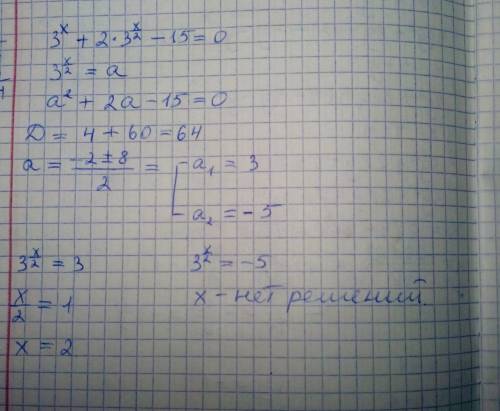 3^x + 2 · 3^(x/2) − 15 = 0
3^(x/2) = a
a² + 2a − 15 = 0
D = 4 + 60 = 64
a = (−2 ± 8)/2 = [ a₁ = 3
a₂ = −5
3^(x/2) = 3
x/2 = 1
x = 2
3^(x/2) = −5
x − нет решений.